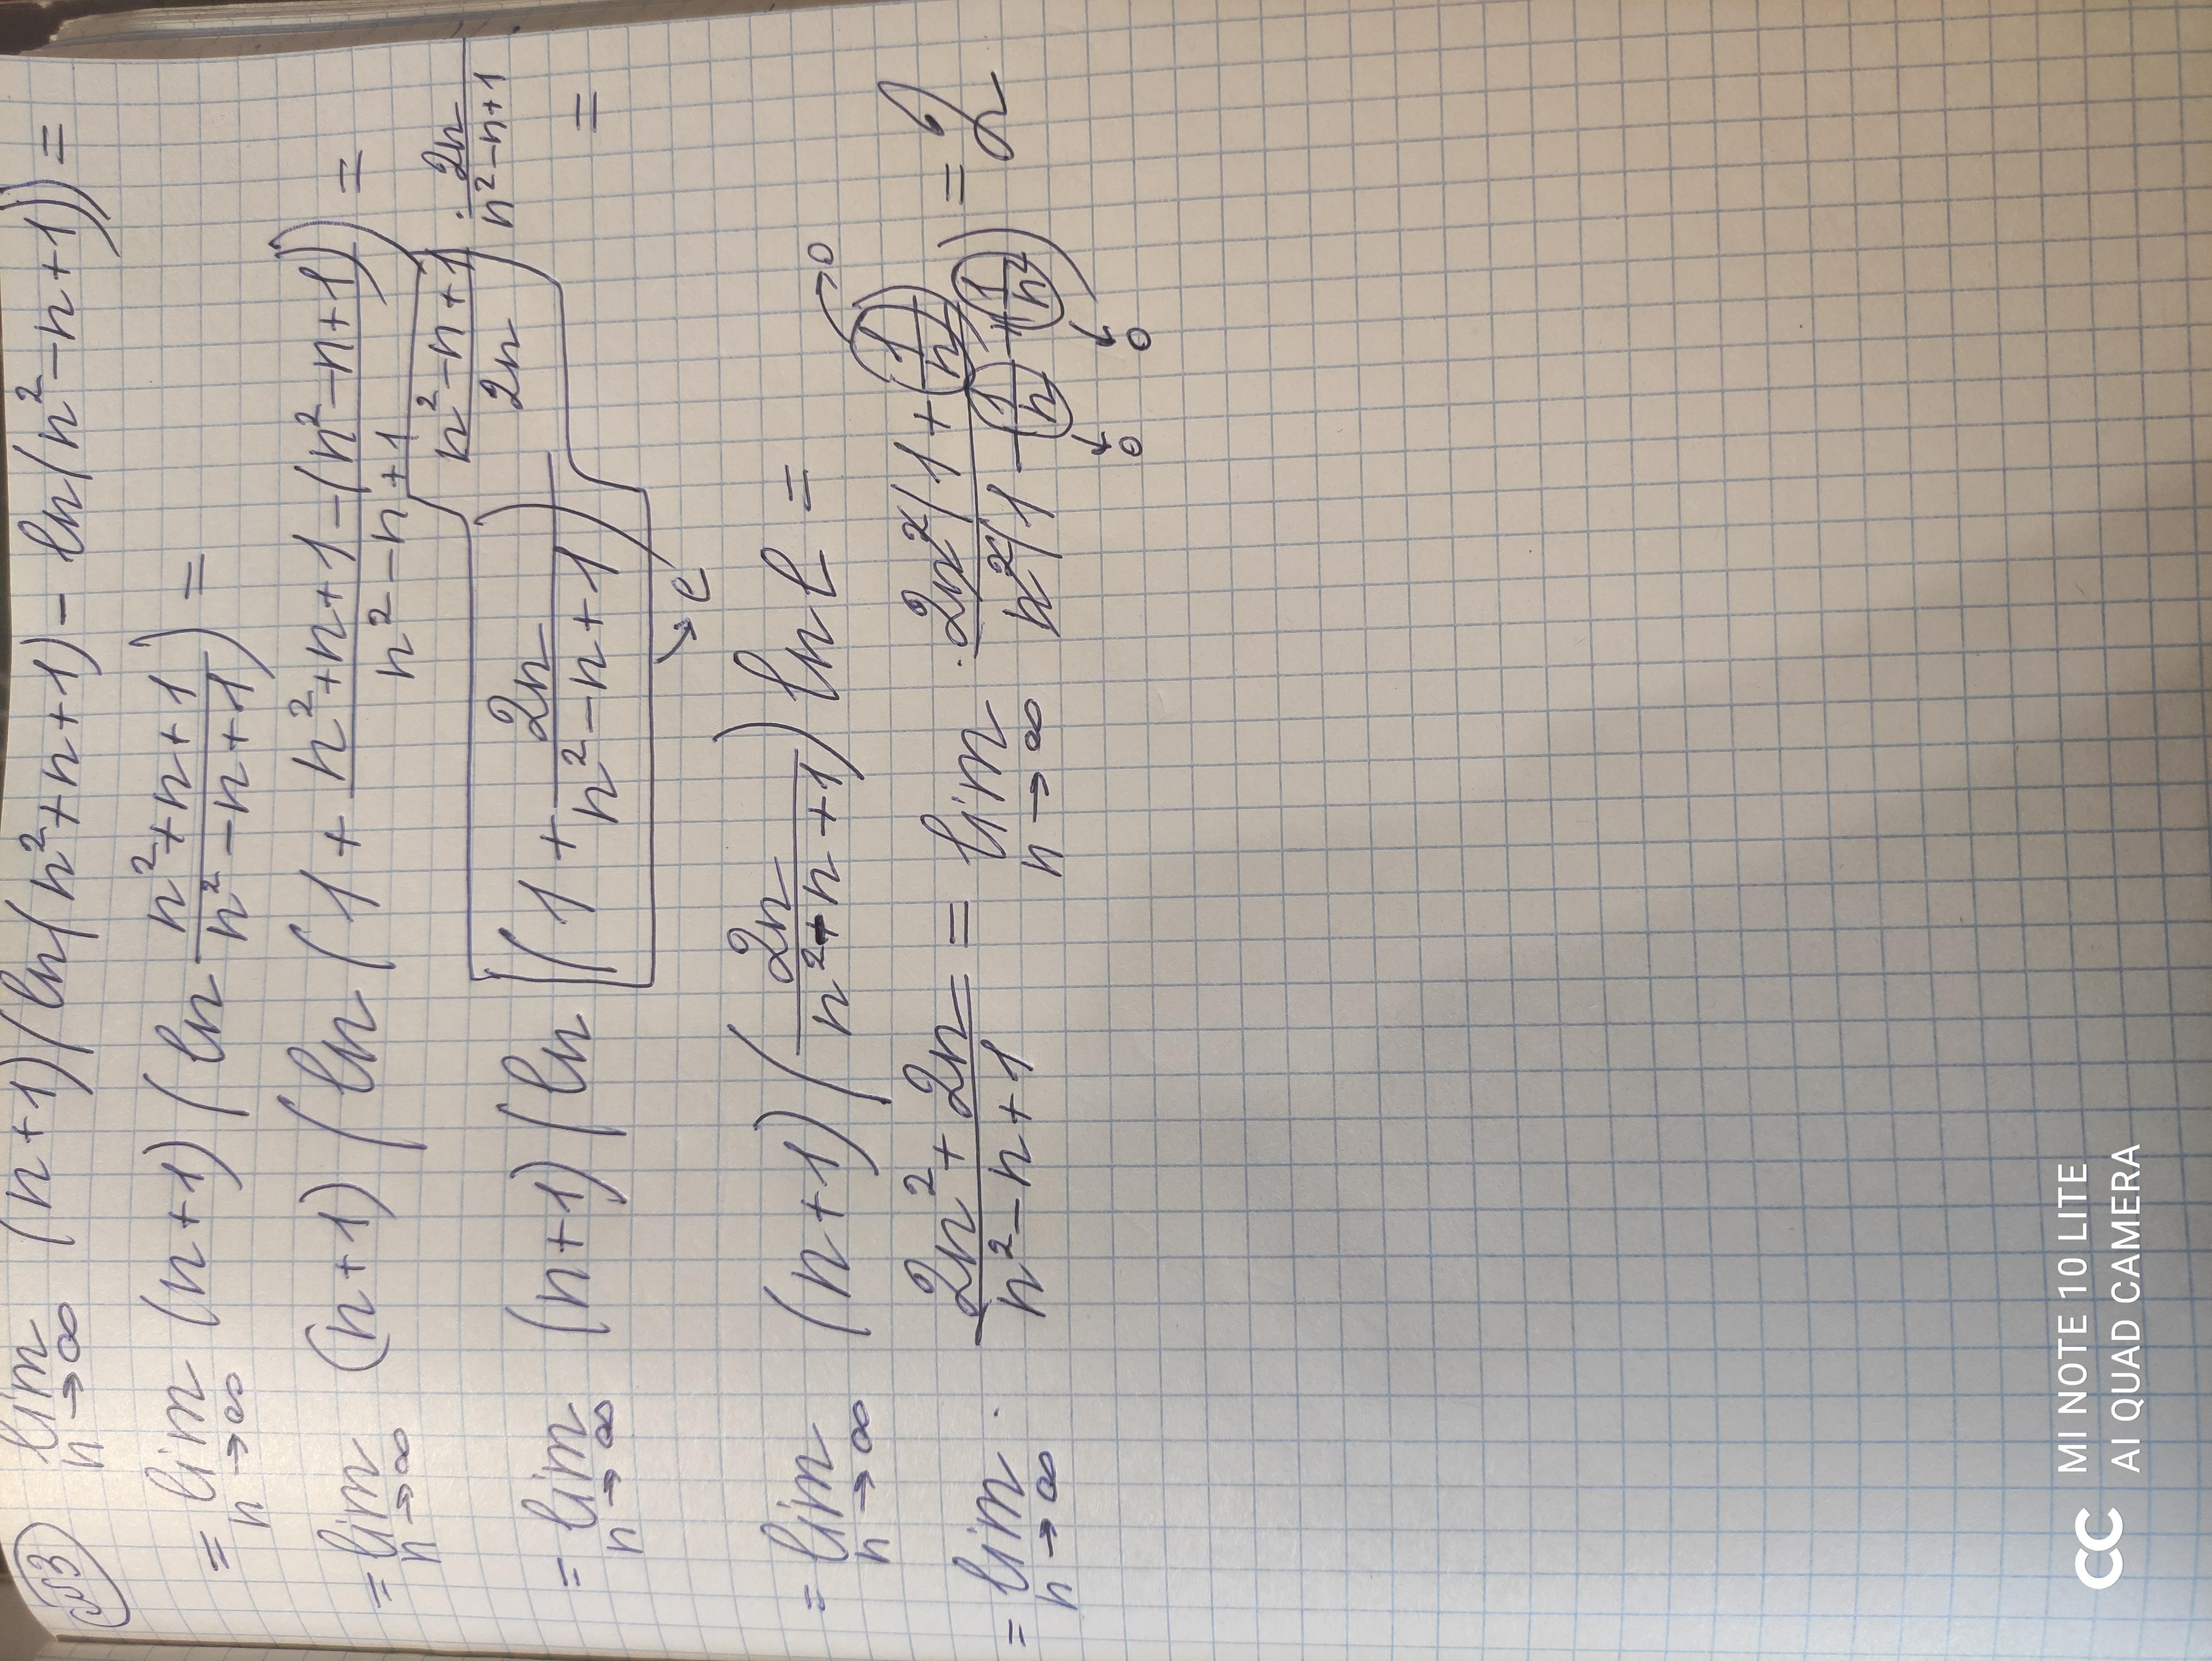 №3 lim n→∞ (n+1)(ln(n²+n+1)-ln(n²-n+1))=
= lim n→∞ (n+1)(ln (n²+n+1)/(n²-n+1))=
= lim n→∞ (n+1)(ln(1+(n²+n+1-(n²-n+1))/(n²-n+1)))=
= lim n→∞ (n+1)(ln[(1+2n/(n²-n+1))^((n²-n+1)/2n)]^(·2n/(n²-n+1)) =
→e
= lim n→∞ (n+1)(2n/(n²-n+1)) ln e =
= lim n→∞ (2n²+2n)/(n²-n+1) = lim n→∞ 2n²(1+(1/n))/n²(1-(1/n)+(1/n²)) = 2
→0
↓0 ↓0
MI NOTE 10 LITE
AI QUAD CAMERA